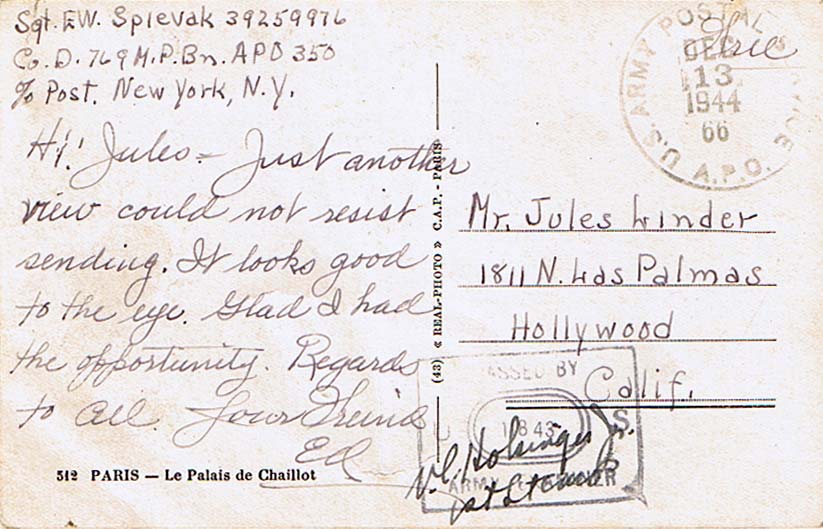 Sgt. EW. Splevak 39259976
Co. D. 769 M.P. Bn. APO 350
% Post. New York, N.Y.
Hi! Jules - Just another
view could not resist
sending. It looks good
to the eye. Glad I had
the opportunity. Regards
to all. Your Friend
Ed
512 PARIS — Le Palais de Chaillot
(43) « REAL-PHOTO » C.A.P. - PARIS
Free
U.S. ARMY POSTAL SERVICE
A.P.O.
DEC
13
1944
66
Mr. Jules Linder
1811 N. Las Palmas
Hollywood
Calif.
PASSED BY
U S
11843
ARMY EXAMINER
V.C. Holsinger Jr.
1st Lt